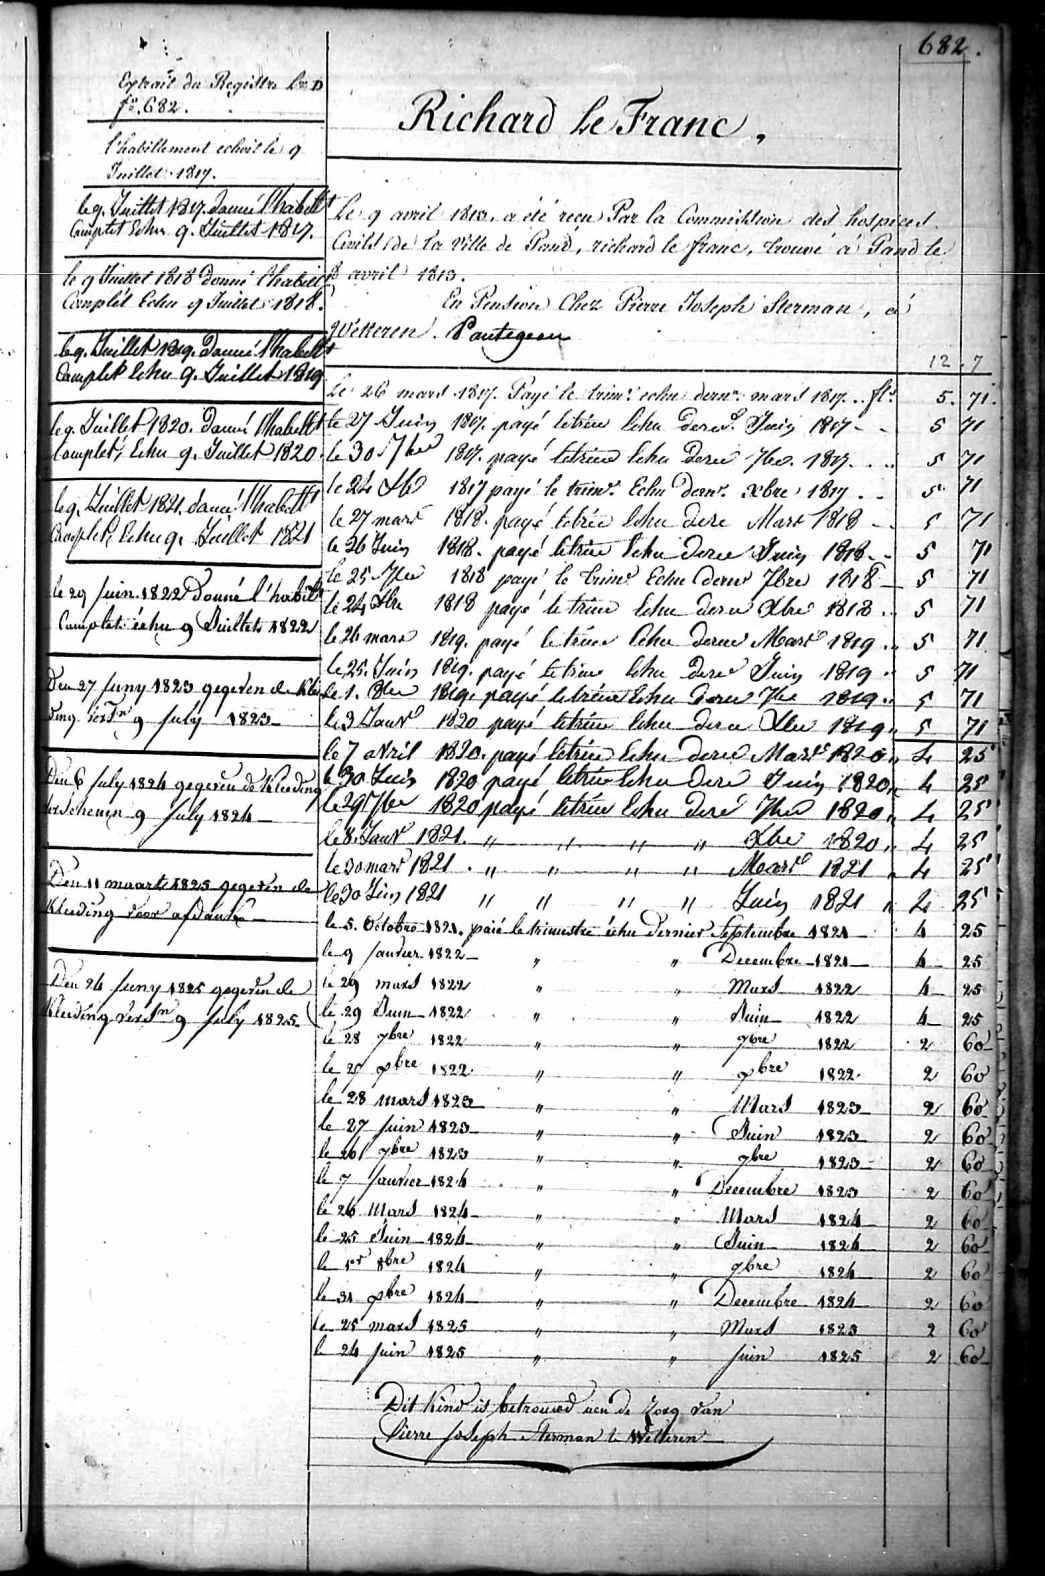 682.
Extrait du Registre Lre D
fo. 682.
l'habillement echoit le 9
Juillet 1817.
le 9. Juillet 1817. donné l'habillt
Complet Echu 9. Juillet 1817.
le 9 Juillet 1818 donné l'habillt
Complèt Echu 9 Juillet 1818.
le 9. Juillet 1819. donné l'habillt
Complet Echu 9. Juillet 1819
le 9. Juillet 1820. donné l'habillt
Complet, Echu 9. Juillet 1820.
le 9. Juillet 1821. donné l'habillt
Complet, Echu 9. Juillet 1821
le 29 Juin 1822 Donné l'habillt
Complet échu 9 Juillet 1822
Den 27 Juny 1823 gegeven de Klee
ding versn 9 July 1823
Den 6 July 1824 gegeven de Kleeding
verschenen 9 July 1824
Den 11 maart 1825 gegeven de
Kleeding voor
Den 24 Juny 1825 gegeven de
Kleeding versn 9 July 1825
Richard Le Franc,
Le 9 avril 1813. a été reçu Par la Commission des hospices
Civils de la Ville de Gand, richard le franc, trouvé à Gand le
8 avril 1813.
En Pension Chez Pierre Joseph Sterman, à
Wetteren.
12. 7
Le 26 mars 1817. Payé le trimr. echu dernr. mars 1817. fls. 5. 71.
le 27 Juin 1817. payé letrim Echu dernr. Juin 1817 5 71
le 30 7bre 1817. payé letrim Echu dernr 7bre. 1817. 5 71
le 24 Xb 1817 payé le trimr. Echu dernr. xbre 1817 5 71
le 27 mars 1818. payé letrim Echu dernr Mars 1818 5 71
le 26 Juin 1818. payé letrim Echu dernr Juin 1818 5 71
le 25 7bre 1818 payé le trimr Echu dernr 7bre 1818 5 71
le 24 Xbre 1818 payé le trim Echu dernr Xbre 1818 5 71
le 26 mars 1819. payé le trim Echu dernr Mars 1819 5 71
le 25. Juin 1819. payé le trim Echu dernr Juin 1819 5 71
le 1. 8bre 1819. payé letrim Echu dernr 7bre 1819 5 71
le 3 Janvr 1820 payé letrim Echu dernr Xbre 1819 5 71
le 7 avril 1820. payé letrim Echu dernr Mars 1820 4 25
le 30 Juin 1820 payé letrim Echu dernr Juin 1820 4 25
le 29 7bre 1820 payé letrim Echu dernr 7bre 1820 4 25
le 8. Janvr 1821. " " " " Xbre 1820 4 25
le 30 mars 1821 " " " " Mars 1821 4 25
le 30 Juin 1821 " " " " Juin 1821 4 25
le 5. Octobre 1821. paié le trimestre échu dernier Septembre 1821 4 25
le 9 Janvier 1822 " " Decembre 1821 4 25
le 29 mars 1822 " " Mars 1822 4 25
le 29 Juin 1822 " " Juin 1822 4 25
le 28 7bre 1822 " " 7bre 1822 2 60
le 2 bre 1822 " " bre 1822 2 60
le 28 mars 1823 " " Mars 1823 2 60
le 27 Juin 1823 " " Juin 1823 2 60
le 26 7bre 1823 " " 7bre 1823 2 60
le 7 Janvier 1824 " " Decembre 1823 2 60
le 26 Mars 1824 " " Mars 1824 2 60
le 25 Juin 1824 " " Juin 1824 2 60
le 1er 8bre 1824 " " 7bre 1824 2 60
le 31 bre 1824 " " Decembre 1824 2 60
le 25 mars 1825 " " Mars 1825 2 60
le 24 Juin 1825 " " Juin 1825 2 60
Dit Kind is betrouwd aen de zorg van
Pierre Joseph Sterman te Wetteren